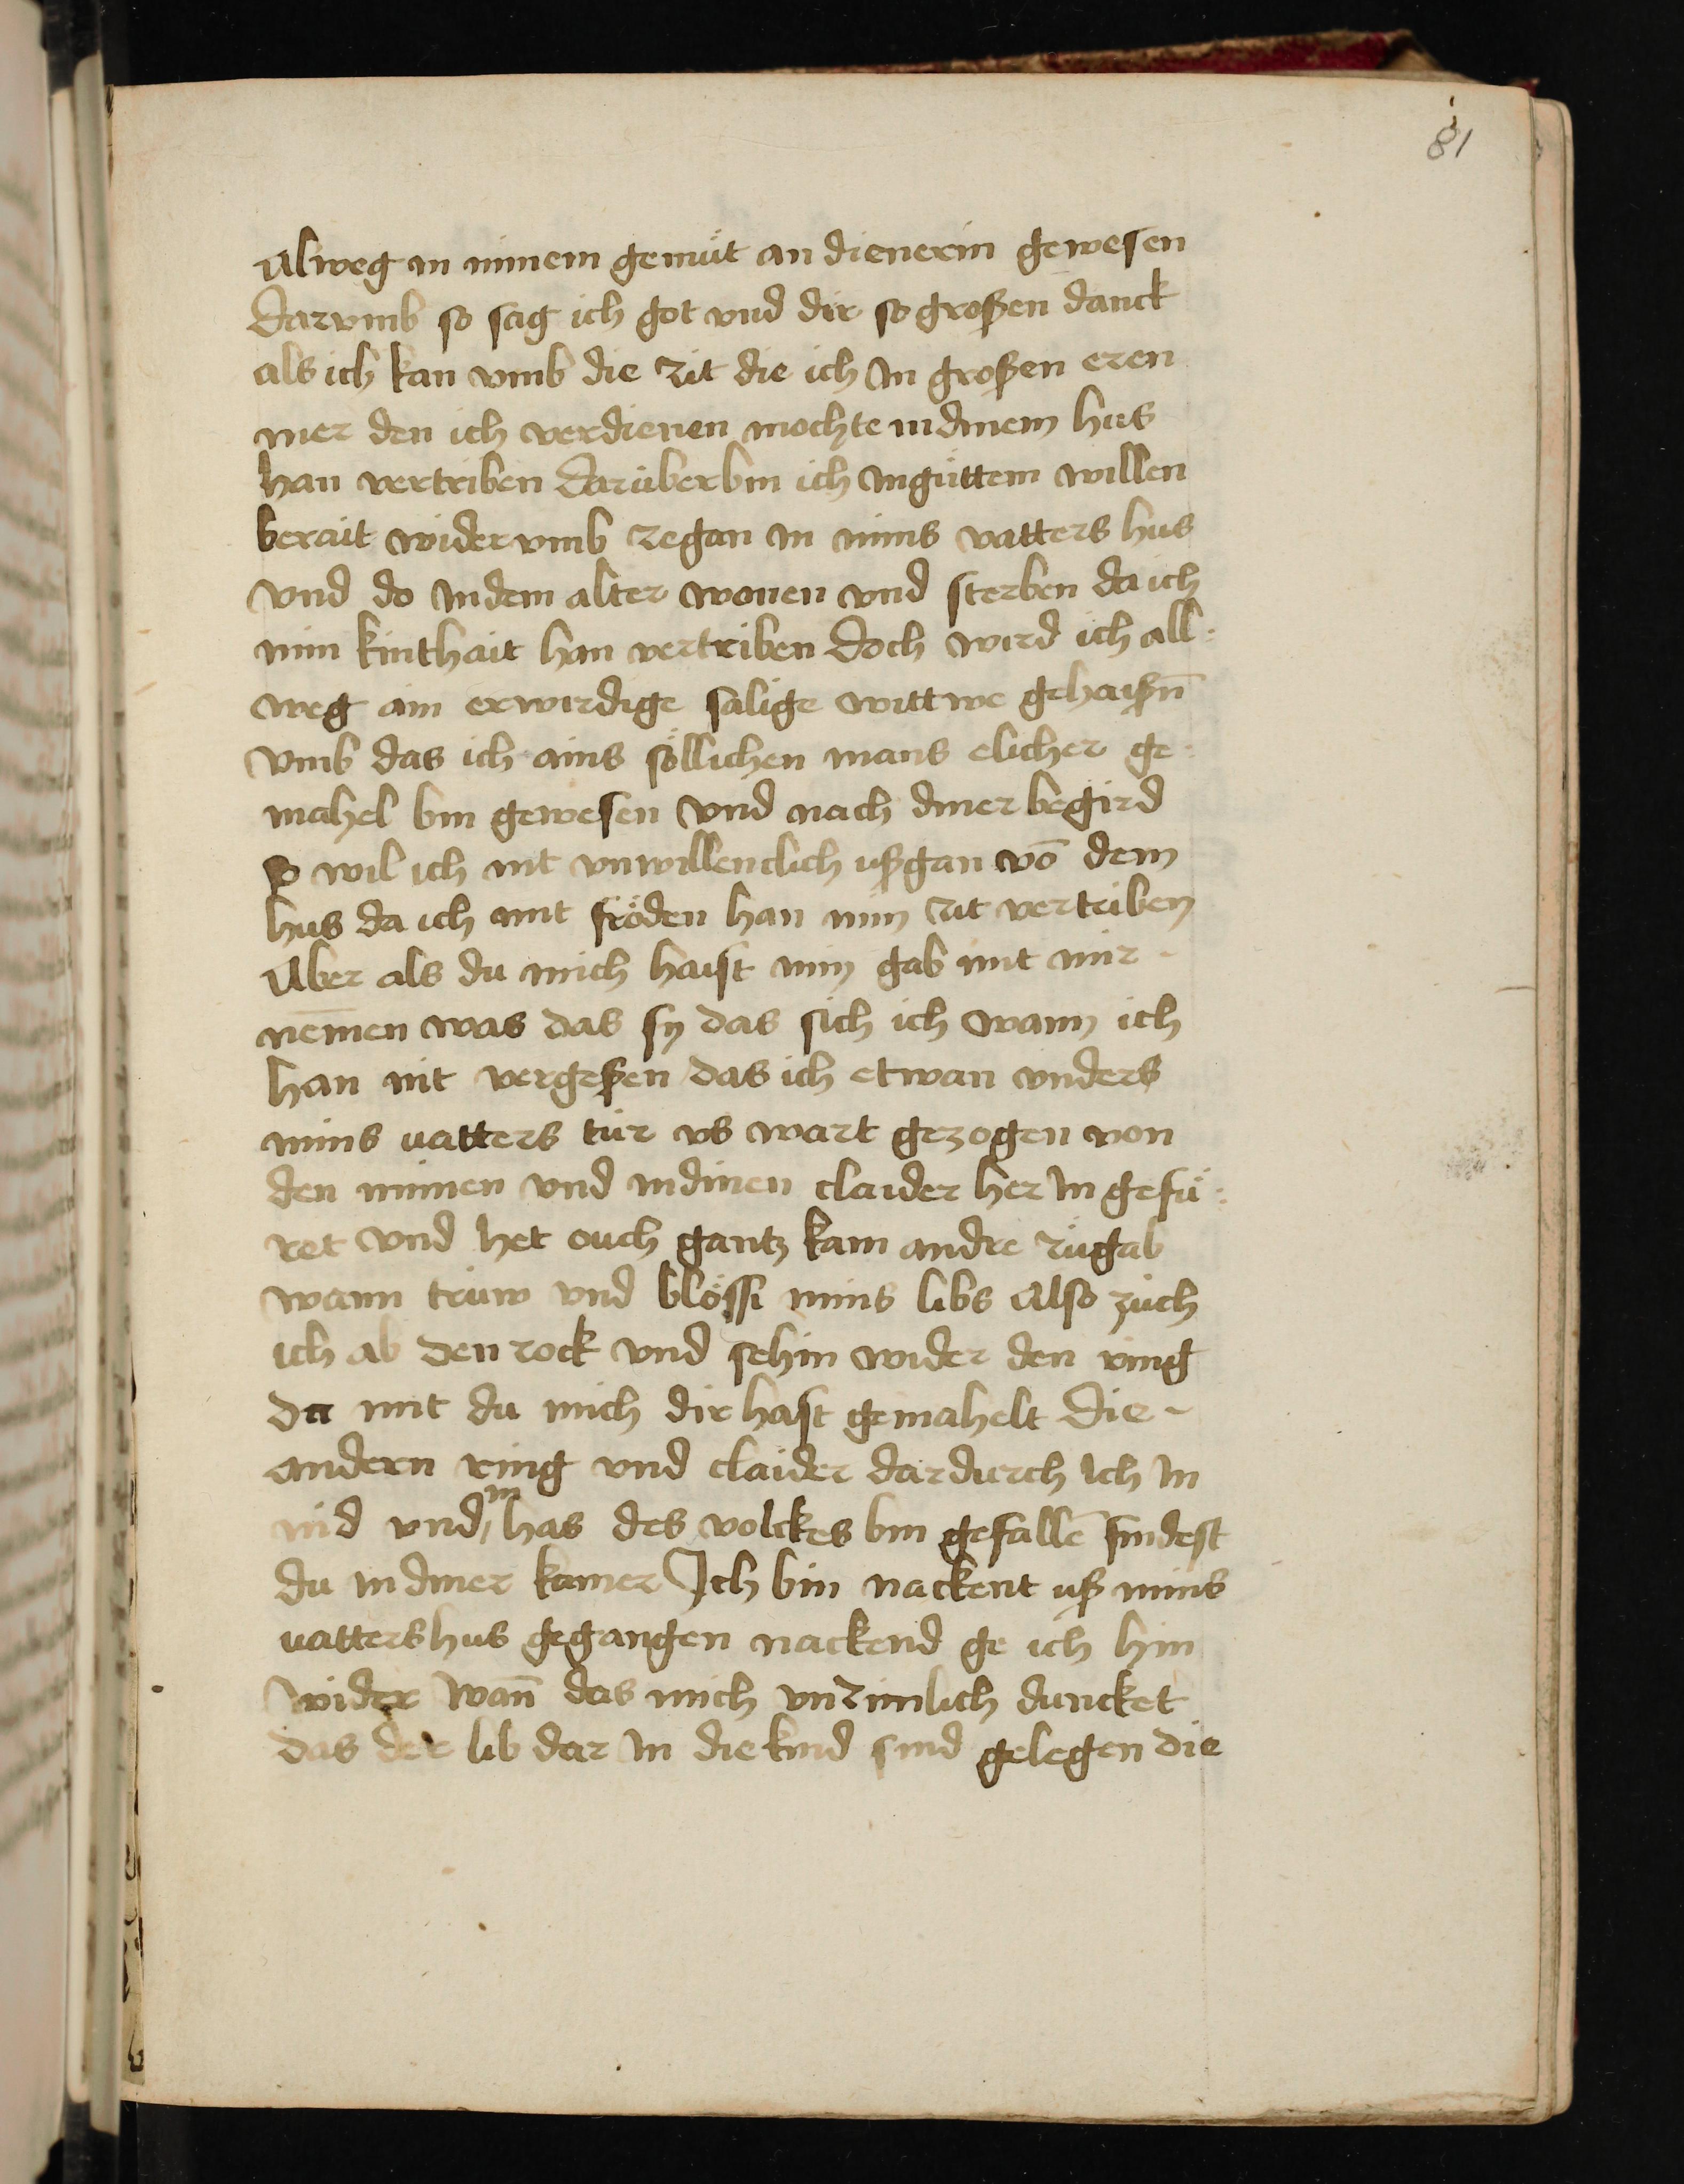 81
alweg in minem gemüt an dienerin gewesen
Darvmb so sag ich got vnd dir so großen danck
als ich kan vmb die zit die ich In großen eren
mer den ich verdienen mochte in dinem hus
han vertriben Darüber bin ich In güttem willen
berait wider vmb ze gan in mins vatters hus
vnd do In dem alter wonen vnd sterben da ich
min kinthait han vertriben Doch wird ich all:
weg ain erwirdige sälige wittwe gehaißn̄
Vmb das ich ains söllichen mans elicher ge:
mahel bin gewesen Vnd nach diner begird
so wil ich nit vnwillenclich ußgan vō dem
hus da ich mit fröden han min zit vertriben
Aber als du mich haist min gab mit mir -
nēmen was das sy das sich ich wann ich
han nit vergeßen das ich etwan vnders
mins vatters tür vs wart gezogen von
den minen vnd in dinen claider her In gefü:
ret vnd het ouch gantz kain andre zügab
wann trüw vnd blössi mins libs Also züch
ich ab den rock vnd se hin wider den ring
da mit du mich dir hast gemahelt Die -
andern ring vnd claider dardurch Ich In
nid vnd in has des volckes bin gefallē findest
du in diner kamer Ich bin nackent uß mins
vatters hus gegangen nackend ge ich hin
wider wan̄ das mich vnzimlich duncket
das der lib dar In die kind sind gelegen die